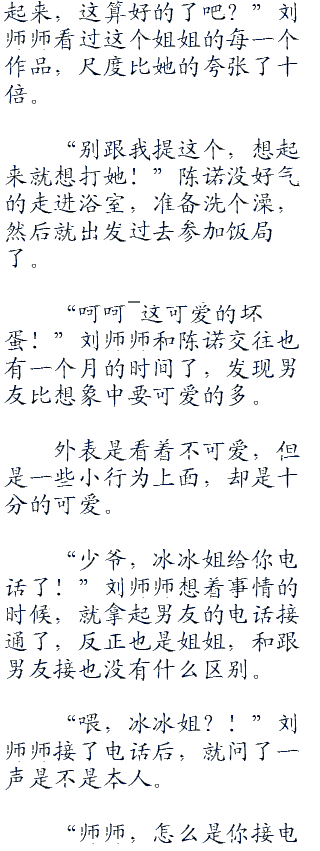 起来，这算好的了吧？”刘
师师看过这个姐姐的每一个
作品，尺度比她的夸张了十
倍。
“别跟我提这个，想起
来就想打她！”陈诺没好气
的走进浴室，准备洗个澡，
然后就出发过去参加饭局
了。
“呵呵~这可爱的坏
蛋！”刘师师和陈诺交往也
有一个月的时间了，发现男
友比想象中要可爱的多。
外表是看着不可爱，但
是一些小行为上面，却是十
分的可爱。
“少爷，冰冰姐给你电
话了！”刘师师想着事情的
时候，就拿起男友的电话接
通了，反正也是姐姐，和跟
男友接也没有什么区别。
“喂，冰冰姐？！”刘
师师接了电话后，就问了一
声是不是本人。
“师师，怎么是你接电